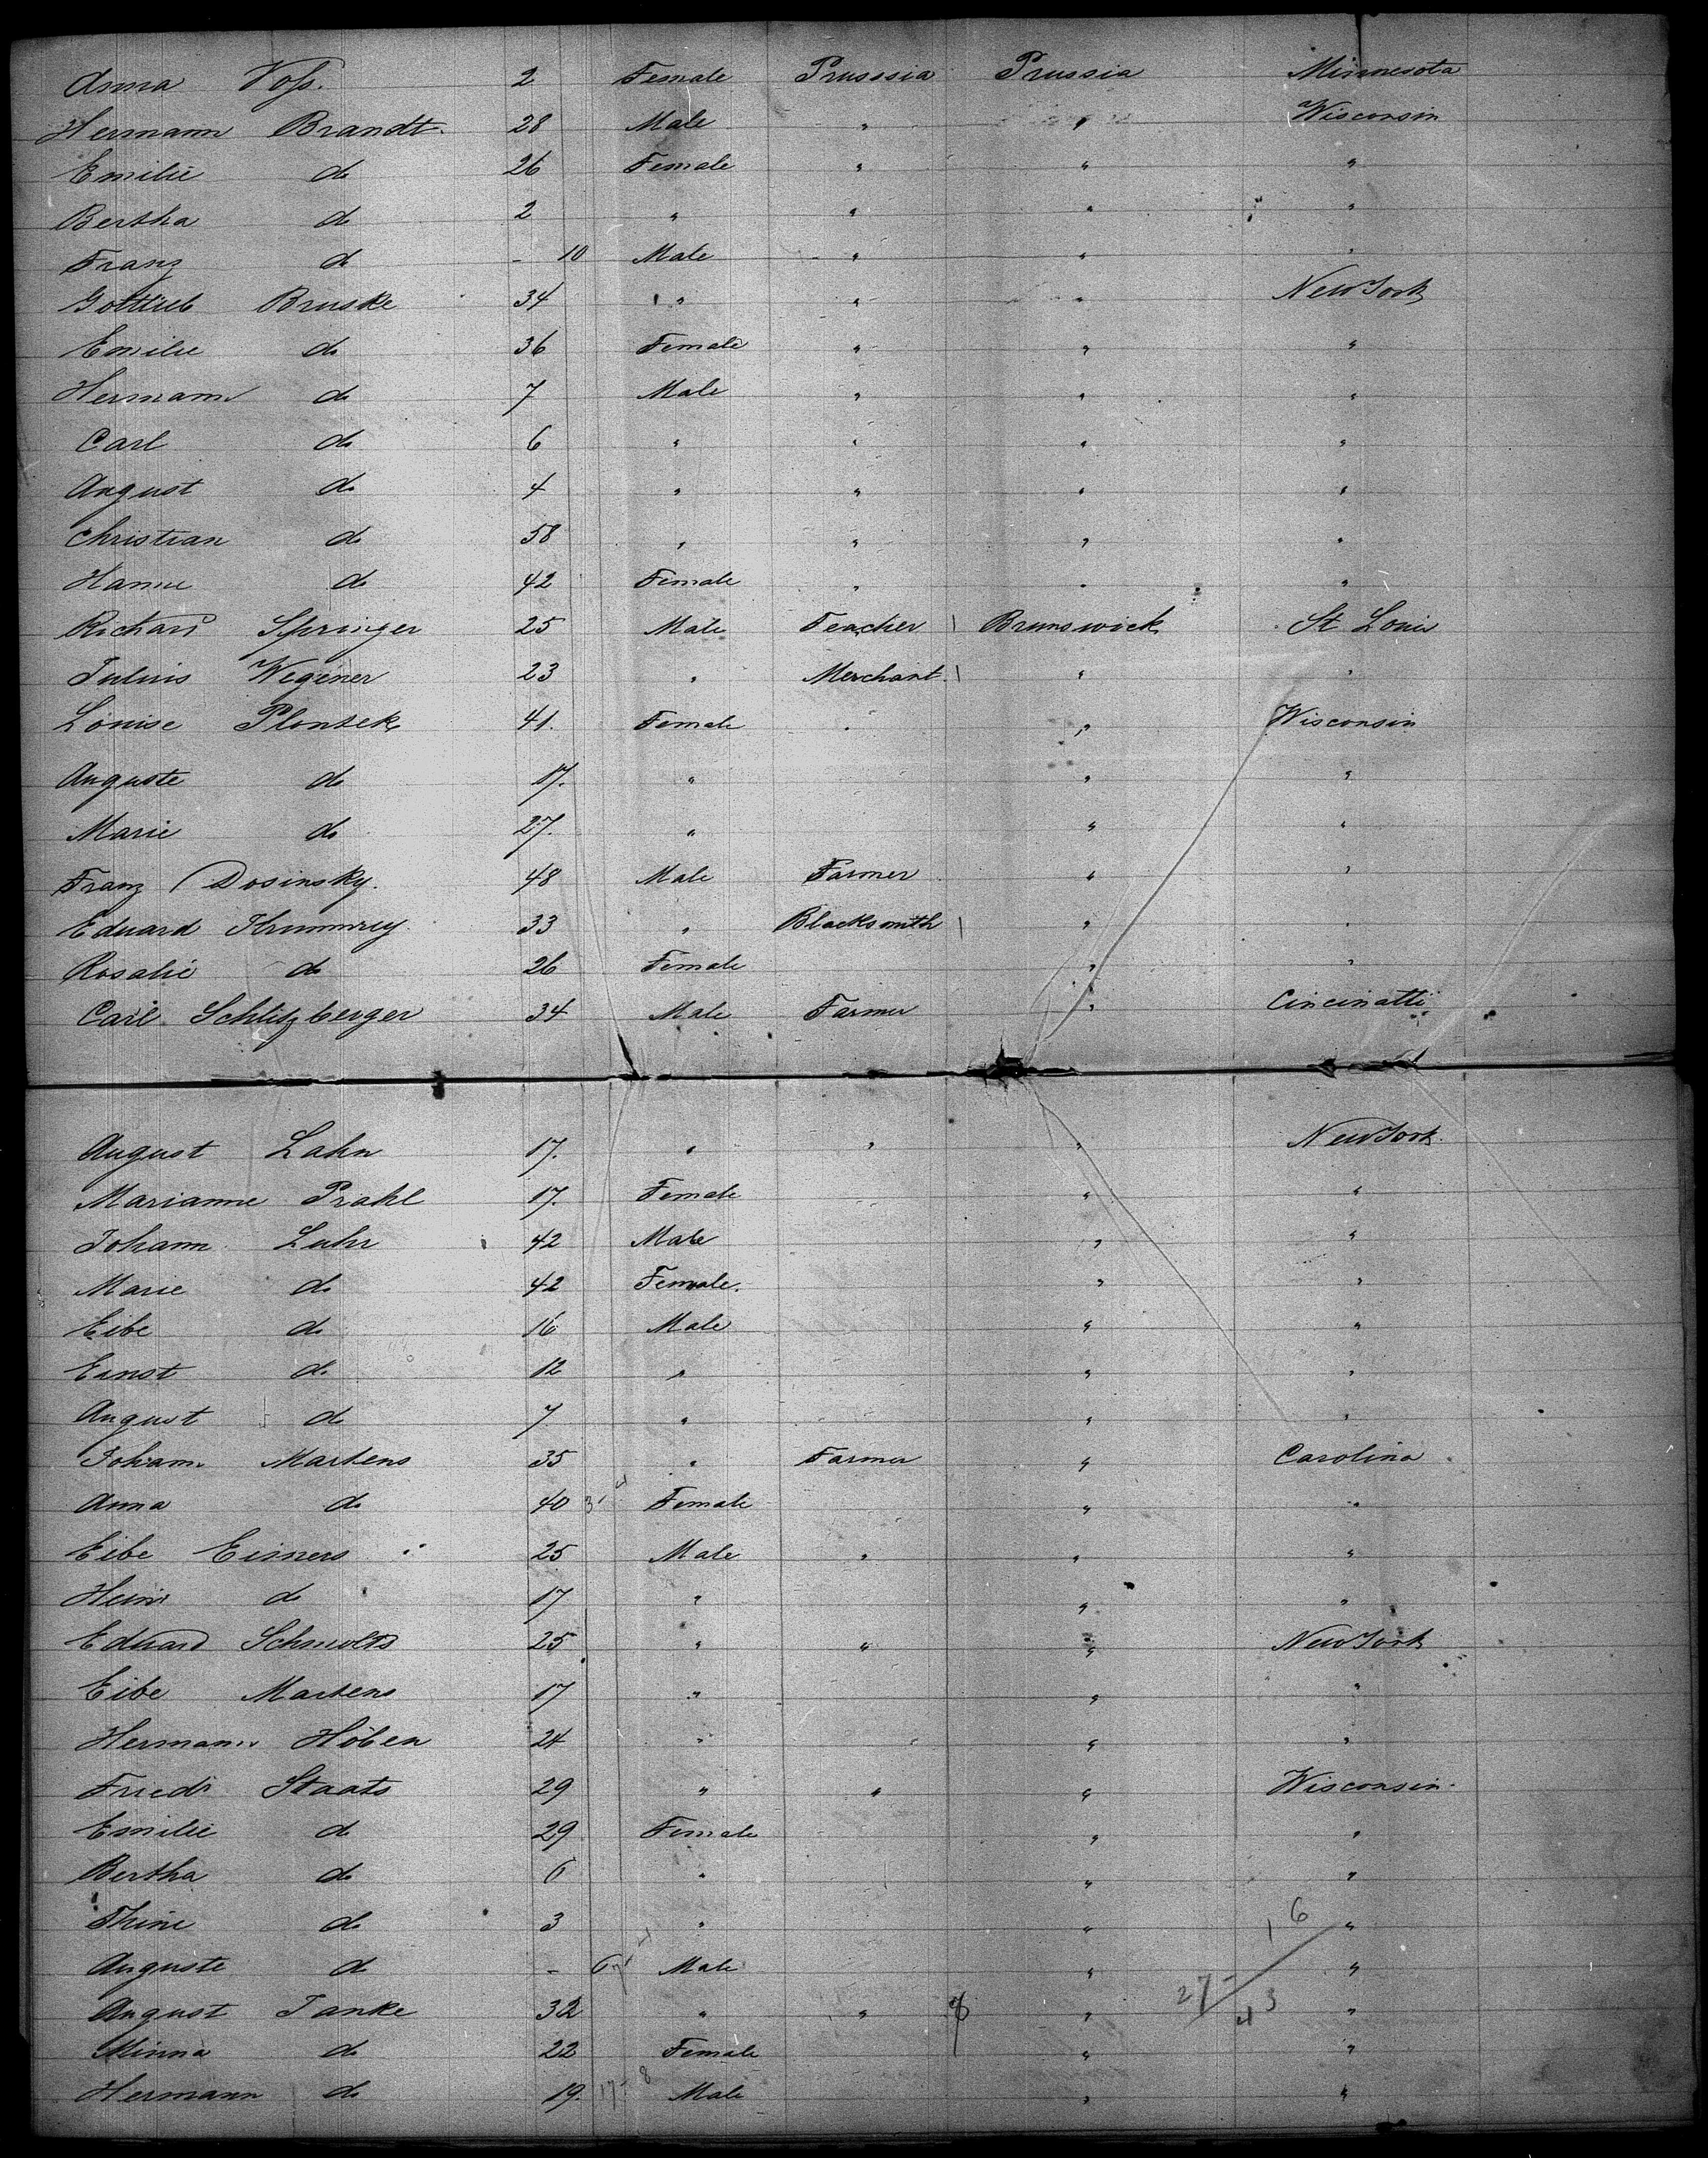 Anna Voß. 2 Female Prusssia Prussia Minnesota
Hermann Brandt. 28 Male " " Wisconsin
Emilie do 26 Female " " "
Bertha do 2 " " " "
Franz do - 10 Male " " "
Gottlieb Bruske 34 " " " New York
Emilie do 36 Female " " "
Hermann do 7 Male " " "
Carl do 6 " " " "
August do 4 " " " "
Christian do 58 " " " "
Hanne do 42 Female " " "
Richard Springer 25 Male Teacher Brunswick St Louis
Julius Wegener 23 " Merchant. " "
Louise Plontek 41. Female " " Wisconsin
Auguste do 17. " " "
Marie do 27. " " "
Franz Dosinsky. 48 Male Farmer " "
Eduard Krummrey 33 " Blacksmith " "
Rosalie do 26 Female " "
Carl Schlitzberger 34 Male Farmer " Cincinatti
August Lahn 17. " " " New York.
Marianne Prahl 17. Female " "
Johann Luhr 42 Male " "
Marie do 42 Female. " "
Eibe do 16 Male " "
Ernst do 12 " " "
August do 7 " " "
Johann Martens 35 " Farmer " Carolina
Anna do 40 Female " "
Eibe Eimers 25 Male " " "
Heinr do 17 " " "
Eduard Schmolts 25 " " " New York
Eibe Martens 17 " " "
Hermann Höben 24 " " "
Friedr Staats 29 " " " Wisconsin
Emilie do 29 Female " "
Bertha do 6 " " "
Thine do 3 " " "
Auguste do - 6 Male " "
August Janke 32 " " " "
Minna do 22 Female " "
Hermann do 19. Male " "